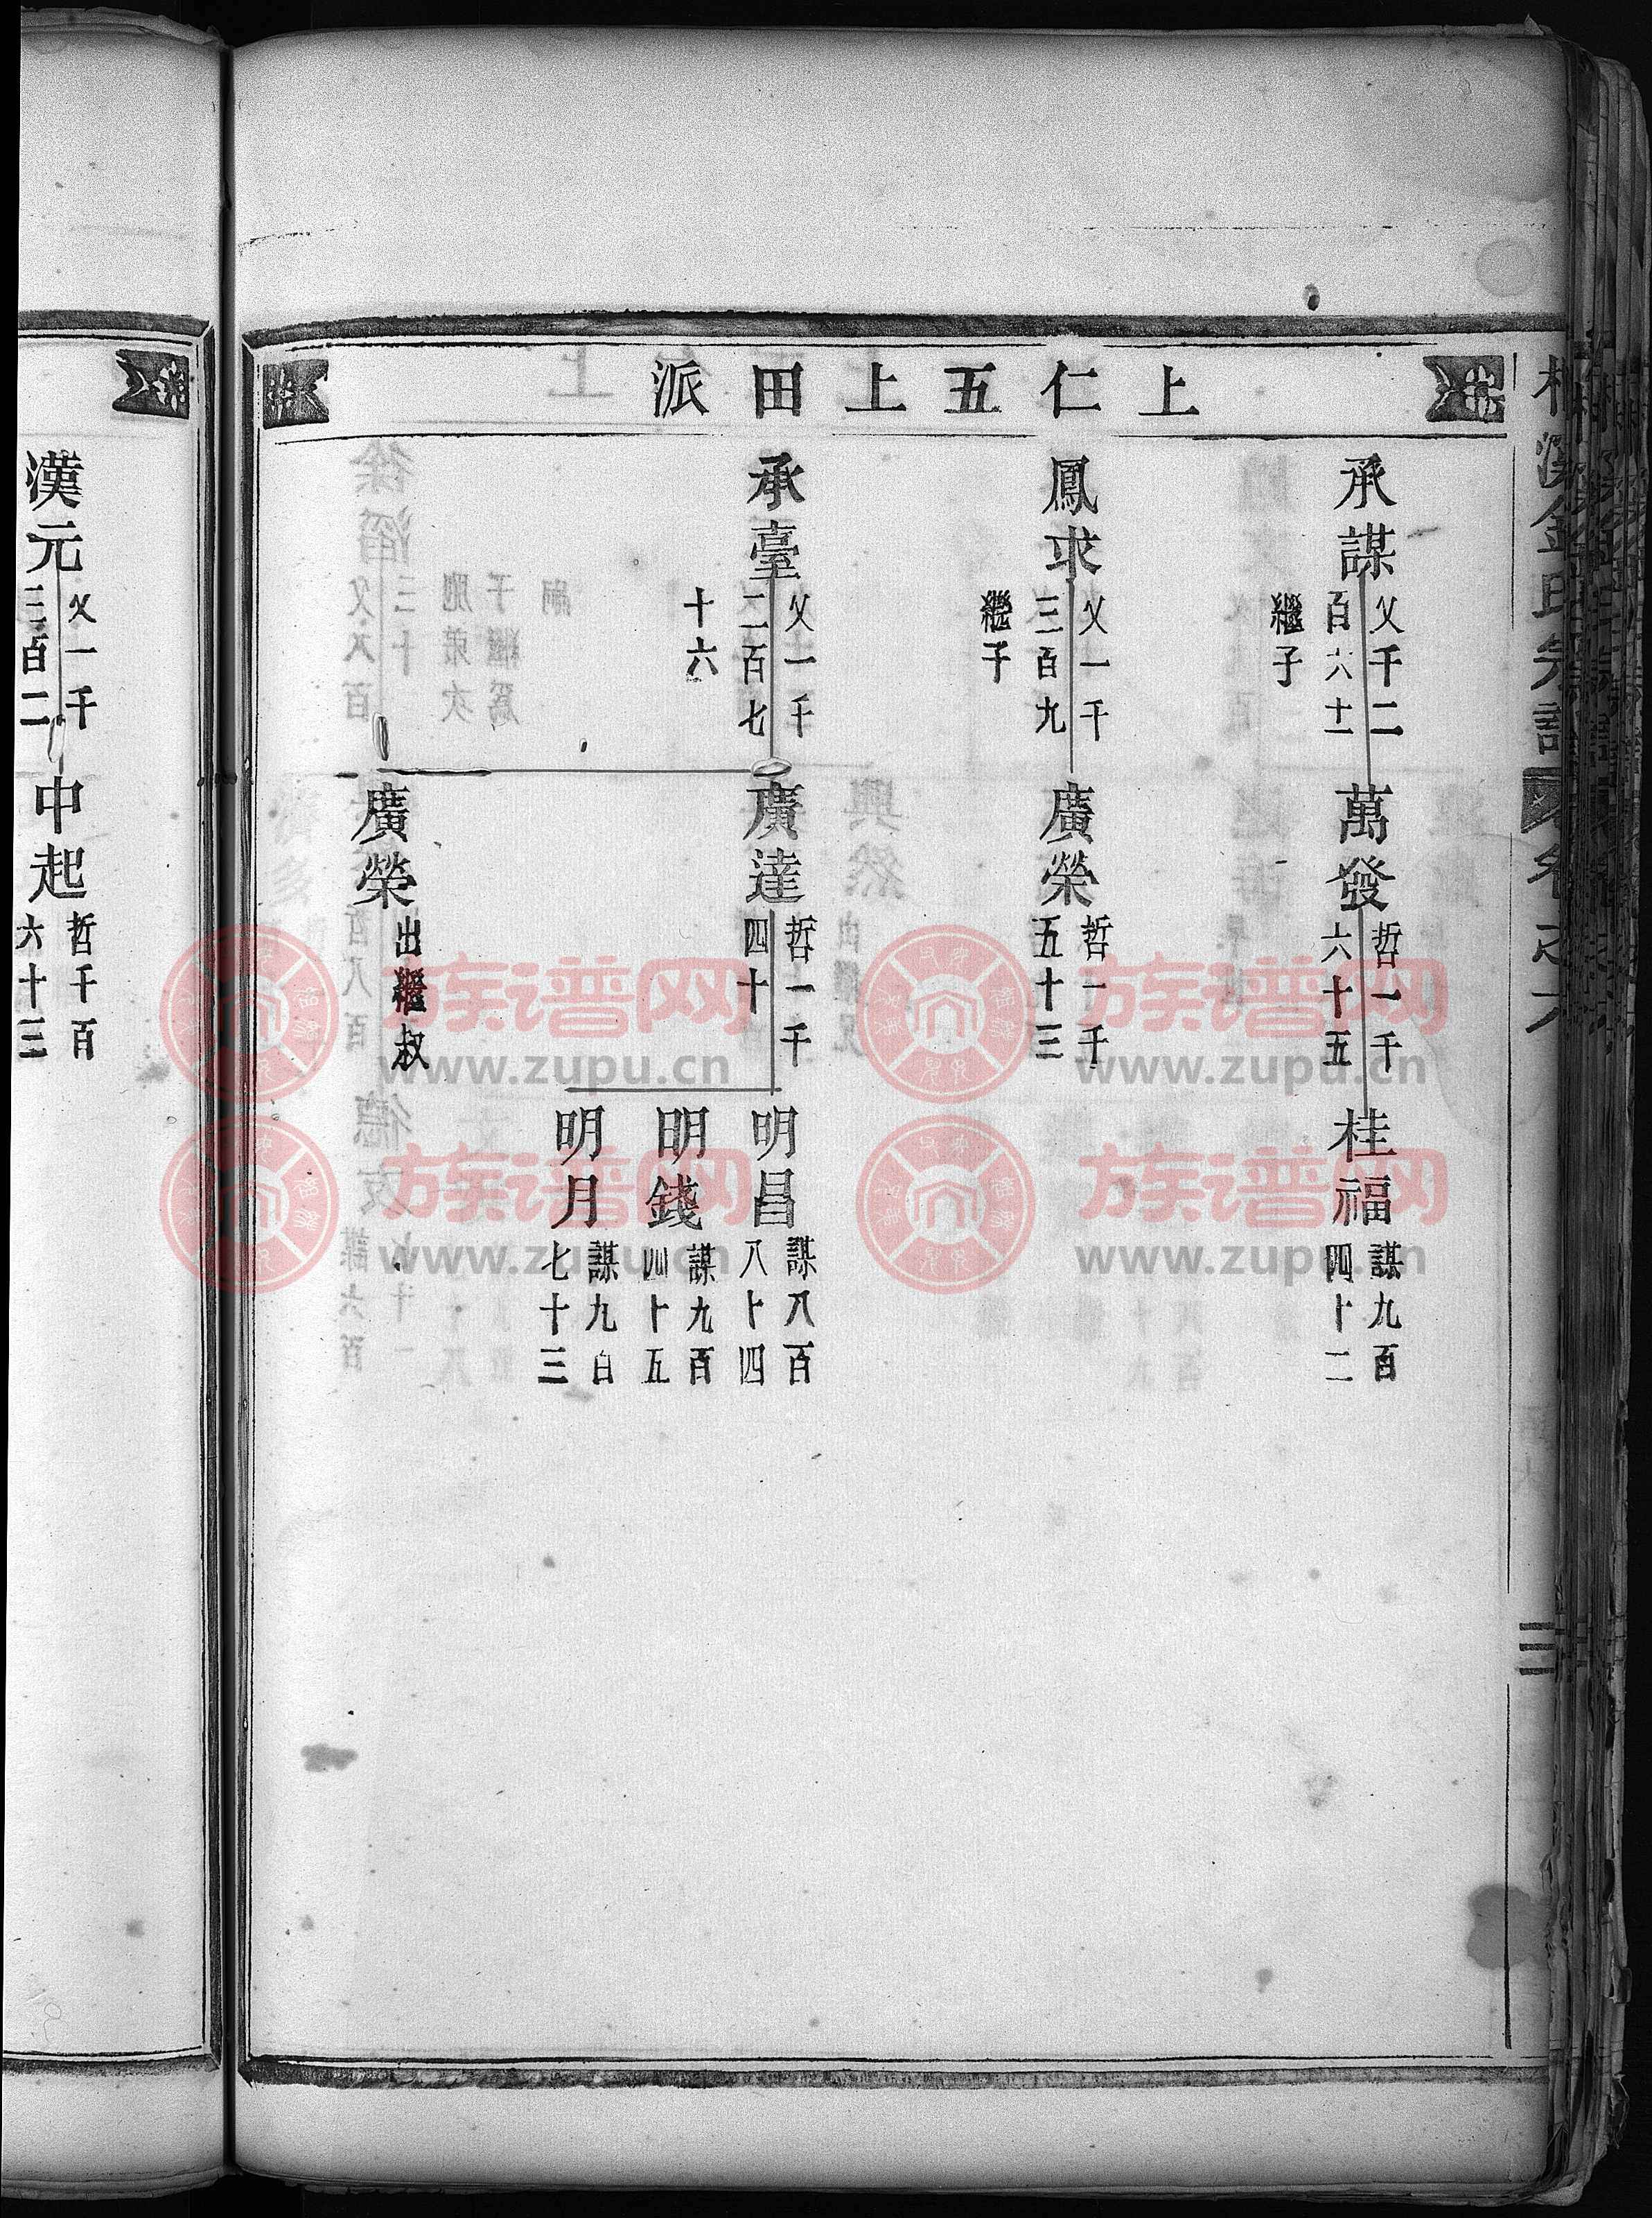 上仁五上田派
承謀
父千二
百六十一
繼子
萬發
哲一千
六十五
桂福
謀九百
四十二
鳳求
父一千
三百九
繼子
廣榮
哲一千
五十三
承臺
父一千
二百七
十六
廣達
哲一千
四十
明昌
謀八百
八十四
明錢
謀九百
四十五
明月
謀九百
七十三
廣榮
出繼叔
漢元
父一千
三百二
中起
哲千百
六十三
三
族谱网
www.zupu.cn
族谱网
www.zupu.cn
族谱网
www.zupu.cn
族谱网
www.zupu.cn